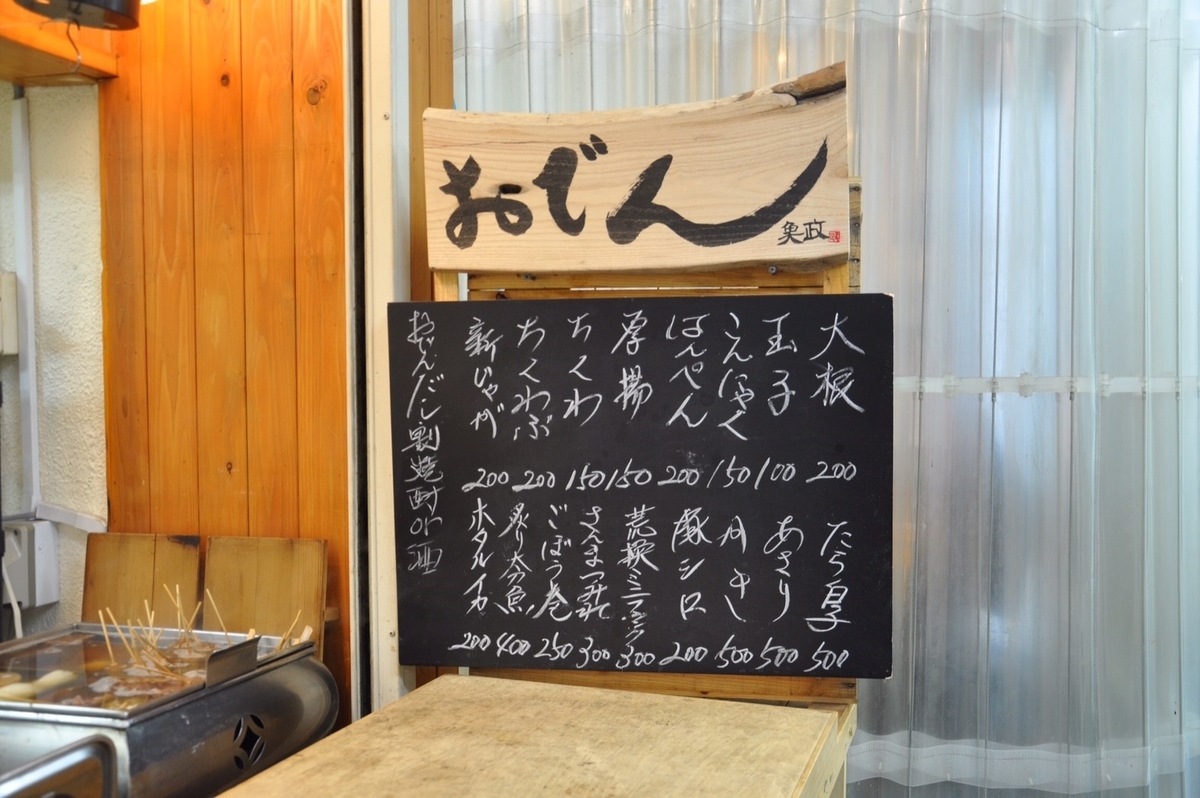 おでん
魚政
大根 200
玉子 100
こんにゃく 150
はんぺん 200
厚揚 150
ちくわ 150
ちくわぶ 200
新じゃが 200
たら白子 500
あさり 500
500
豚シロ 200
300
さんまつみれ 300
ごぼう巻 250
炙り太刀魚 400
ホタルイカ 200
おでんだし割焼酎or酒